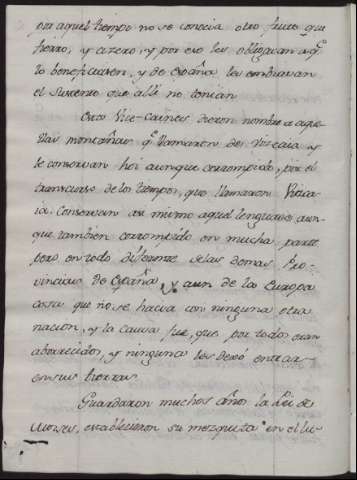 por aquel tiempo no se conocia otro fruto que
hierro, y azero, y por eso les obligaran a q.e
lo beneficiasen, y de España les embiaran
el sustento que alli no tenian
Estos Vice-caines dieron nombre a aque
llas montañas q.e llamaron de Vizcaia y
le conservan hoi aunque corrompido, por el
transcurso de los tiempos, que llamaron Vizca
ia. Conservan asi mismo aquel lenguaje aun-
que tambien corrompido en mucha parte
pero en todo diferente de las demas Pro-
vincias de España, y aun de la Europa
cosa que no se hacia con ninguna otra
nacion, y la causa fue, que por todos eran
aborrecidos, y ninguna les dexó entrar
en sus tierras.
Guardaron muchos años la Lei de
Moises, establecieron su mezquita en el lu-